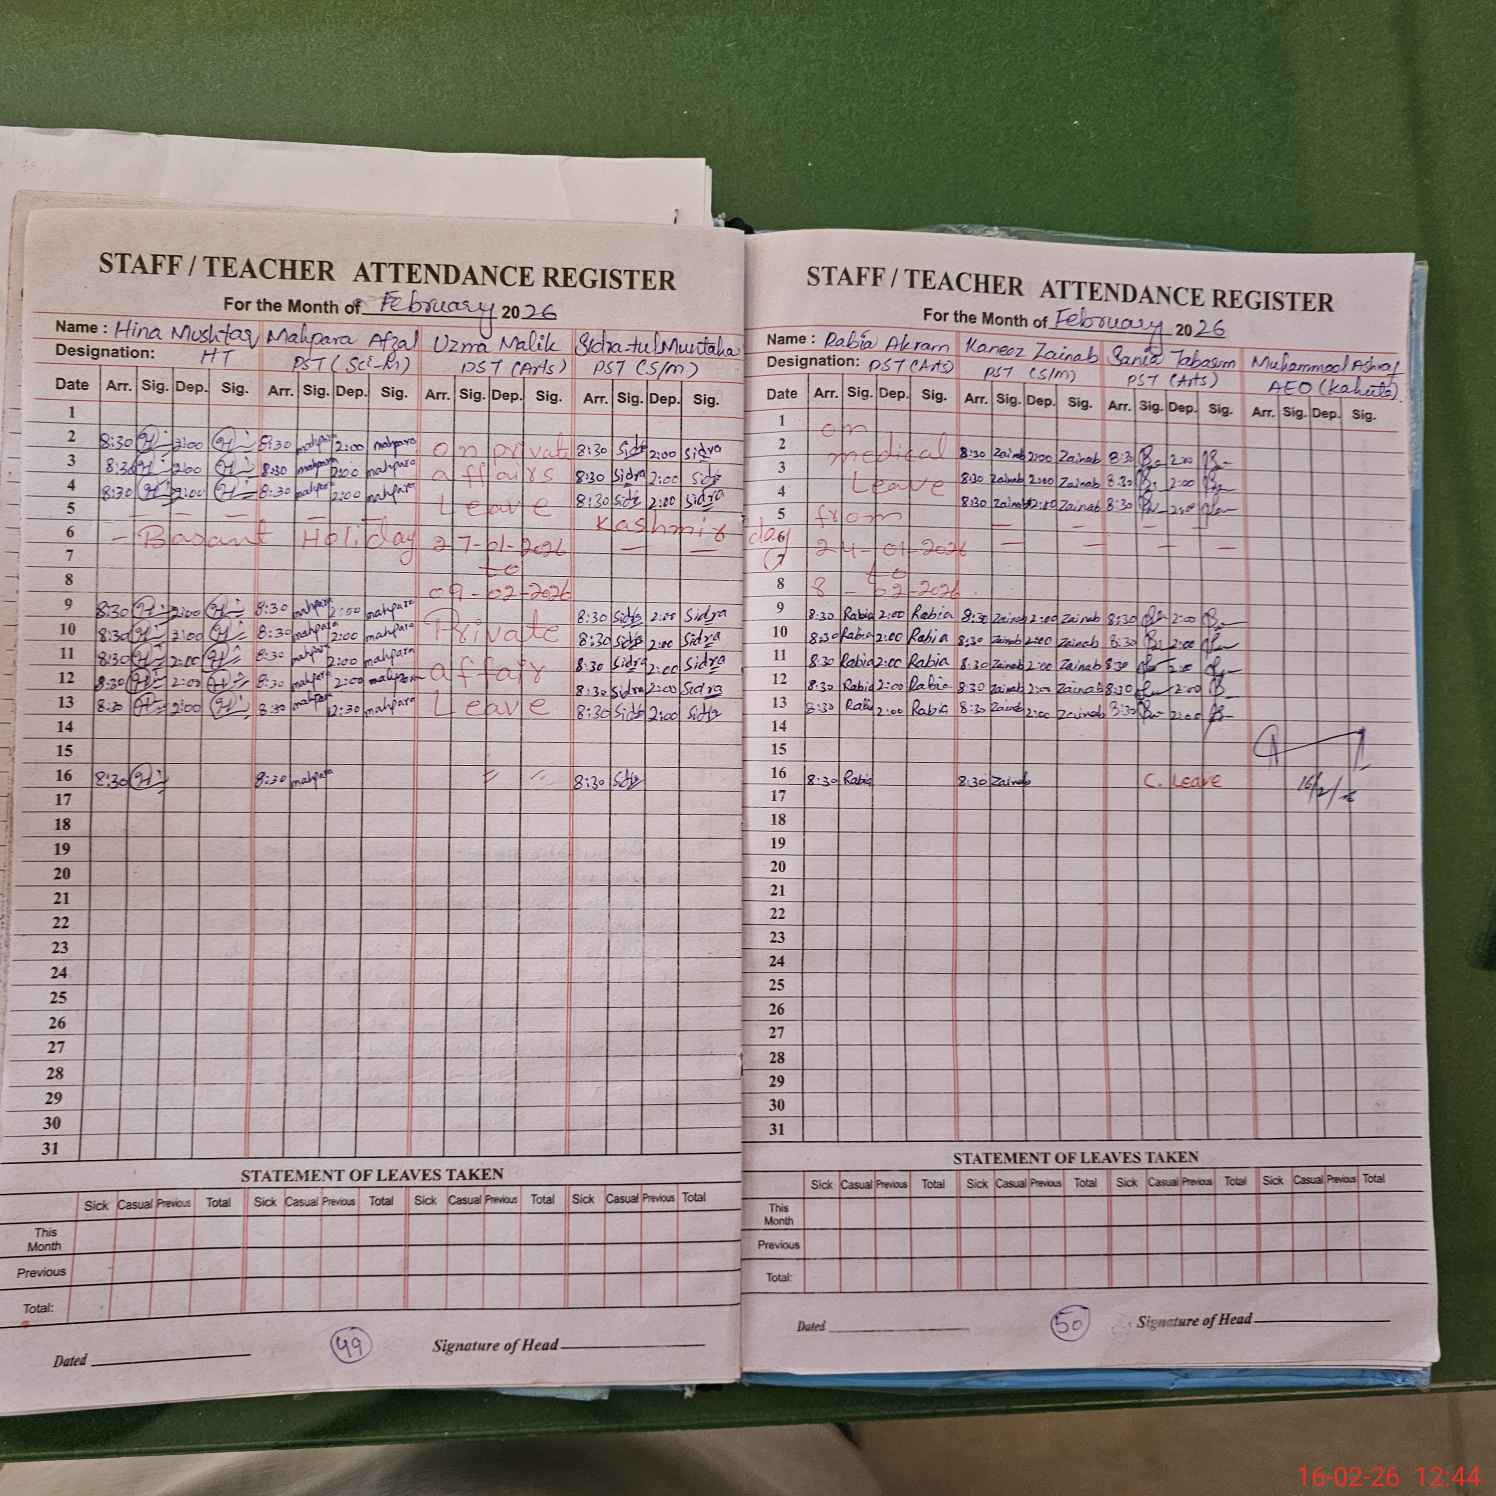 STAFF / TEACHER ATTENDANCE REGISTER
For the Month of February 2026
Name : Hina Mushtaq Mahpara Afzal Uzma Malik Sidra-tul-Muntaha
Designation: HT PST (Sci-M) PST (Arts) PST (S/M)
Date Arr. Sig. Dep. Sig. Arr. Sig. Dep. Sig. Arr. Sig. Dep. Sig. Arr. Sig. Dep. Sig.
1
2 8:30 2:00 8:30 mahpara 2:00 mahpara on private 8:30 Sidra 2:00 Sidra
3 8:30 2:00 8:30 mahpara 2:00 mahpara affairs 8:30 Sidra 2:00 Sidra
4 8:30 2:00 8:30 mahpara 2:00 mahpara Leave 8:30 Sidra 2:00 Sidra
5 — — — — Kashmir
6 - Basant Holiday 27-01-2026 — —
7 to
8 09-02-2026
9 8:30 2:00 8:30 mahpara 2:00 mahpara Private 8:30 Sidra 2:00 Sidra
10 8:30 2:00 8:30 mahpara 2:00 mahpara 8:30 Sidra 2:00 Sidra
11 8:30 2:00 8:30 mahpara 2:00 mahpara affair 8:30 Sidra 2:00 Sidra
12 8:30 2:00 8:30 mahpara 2:00 mahpara 8:30 Sidra 2:00 Sidra
13 8:30 2:00 8:30 mahpara 12:30 mahpara Leave 8:30 Sidra 2:00 Sidra
14
15
16 8:30 8:30 mahpara 8:30 Sidra
17
18
19
20
21
22
23
24
25
26
27
28
29
30
31
STATEMENT OF LEAVES TAKEN
Sick Casual Previous Total Sick Casual Previous Total Sick Casual Previous Total Sick Casual Previous Total
This Month
Previous
Total:
49
Dated Signature of Head
STAFF / TEACHER ATTENDANCE REGISTER
For the Month of February 2026
Name : Rabia Akram Kaneez Zainab Sania Tabasum Muhammad Ashraf
Designation: PST (Arts) PST (S/M) PST (Arts) AEO (Kahuta)
Date Arr. Sig. Dep. Sig. Arr. Sig. Dep. Sig. Arr. Sig. Dep. Sig. Arr. Sig. Dep. Sig.
1 on
2 medical 8:30 Zainab 2:00 Zainab 8:30 2:00
3 Leave 8:30 Zainab 2:00 Zainab 8:30 2:00
4 8:30 Zainab 2:00 Zainab 8:30 2:00
5 from — — — —
6 day 24-01-2026 — — — —
7 to
8 8-02-2026
9 8:30 Rabia 2:00 Rabia 8:30 Zainab 2:00 Zainab 8:30 2:00
10 8:30 Rabia 2:00 Rabia 8:30 Zainab 2:00 Zainab 8:30 2:00
11 8:30 Rabia 2:00 Rabia 8:30 Zainab 2:00 Zainab 8:30 2:00
12 8:30 Rabia 2:00 Rabia 8:30 Zainab 2:00 Zainab 8:30 2:00
13 8:30 Rabia 2:00 Rabia 8:30 Zainab 2:00 Zainab 8:30 2:00
14
15
16 8:30 Rabia 8:30 Zainab C. Leave
17
18
19
20
21
22
23
24
25
26
27
28
29
30
31
STATEMENT OF LEAVES TAKEN
Sick Casual Previous Total Sick Casual Previous Total Sick Casual Previous Total Sick Casual Previous Total
This Month
Previous
Total:
50
Dated Signature of Head
16-02-26 12:44